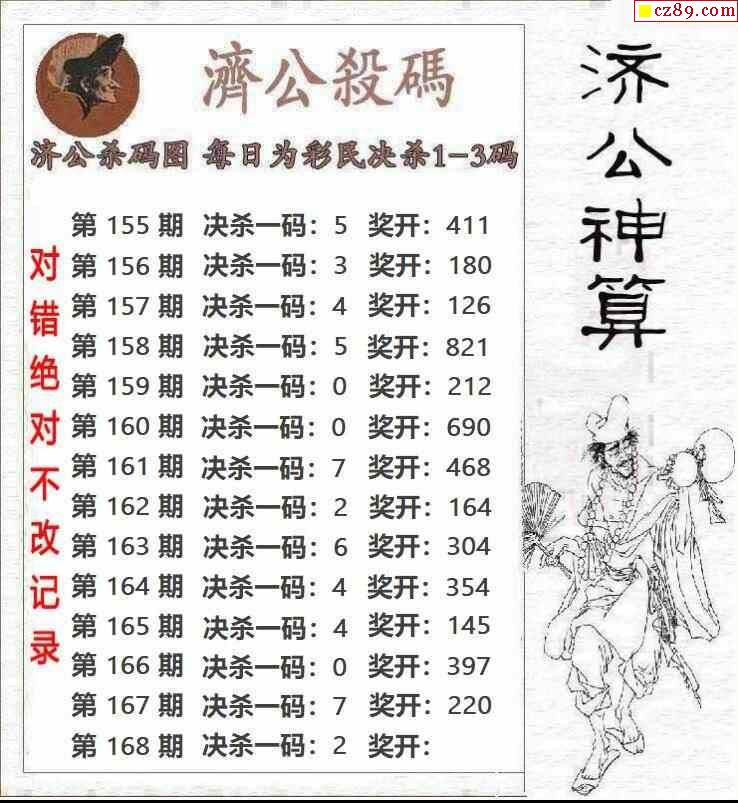 cz89.com
濟公殺碼
济公杀码图 每日为彩民决杀1-3码
第 155 期 决杀一码: 5 奖开: 411
第 156 期 决杀一码: 3 奖开: 180
第 157 期 决杀一码: 4 奖开: 126
第 158 期 决杀一码: 5 奖开: 821
第 159 期 决杀一码: 0 奖开: 212
第 160 期 决杀一码: 0 奖开: 690
第 161 期 决杀一码: 7 奖开: 468
第 162 期 决杀一码: 2 奖开: 164
第 163 期 决杀一码: 6 奖开: 304
第 164 期 决杀一码: 4 奖开: 354
第 165 期 决杀一码: 4 奖开: 145
第 166 期 决杀一码: 0 奖开: 397
第 167 期 决杀一码: 7 奖开: 220
第 168 期 决杀一码: 2 奖开:
对错绝对不改记录
济公神算